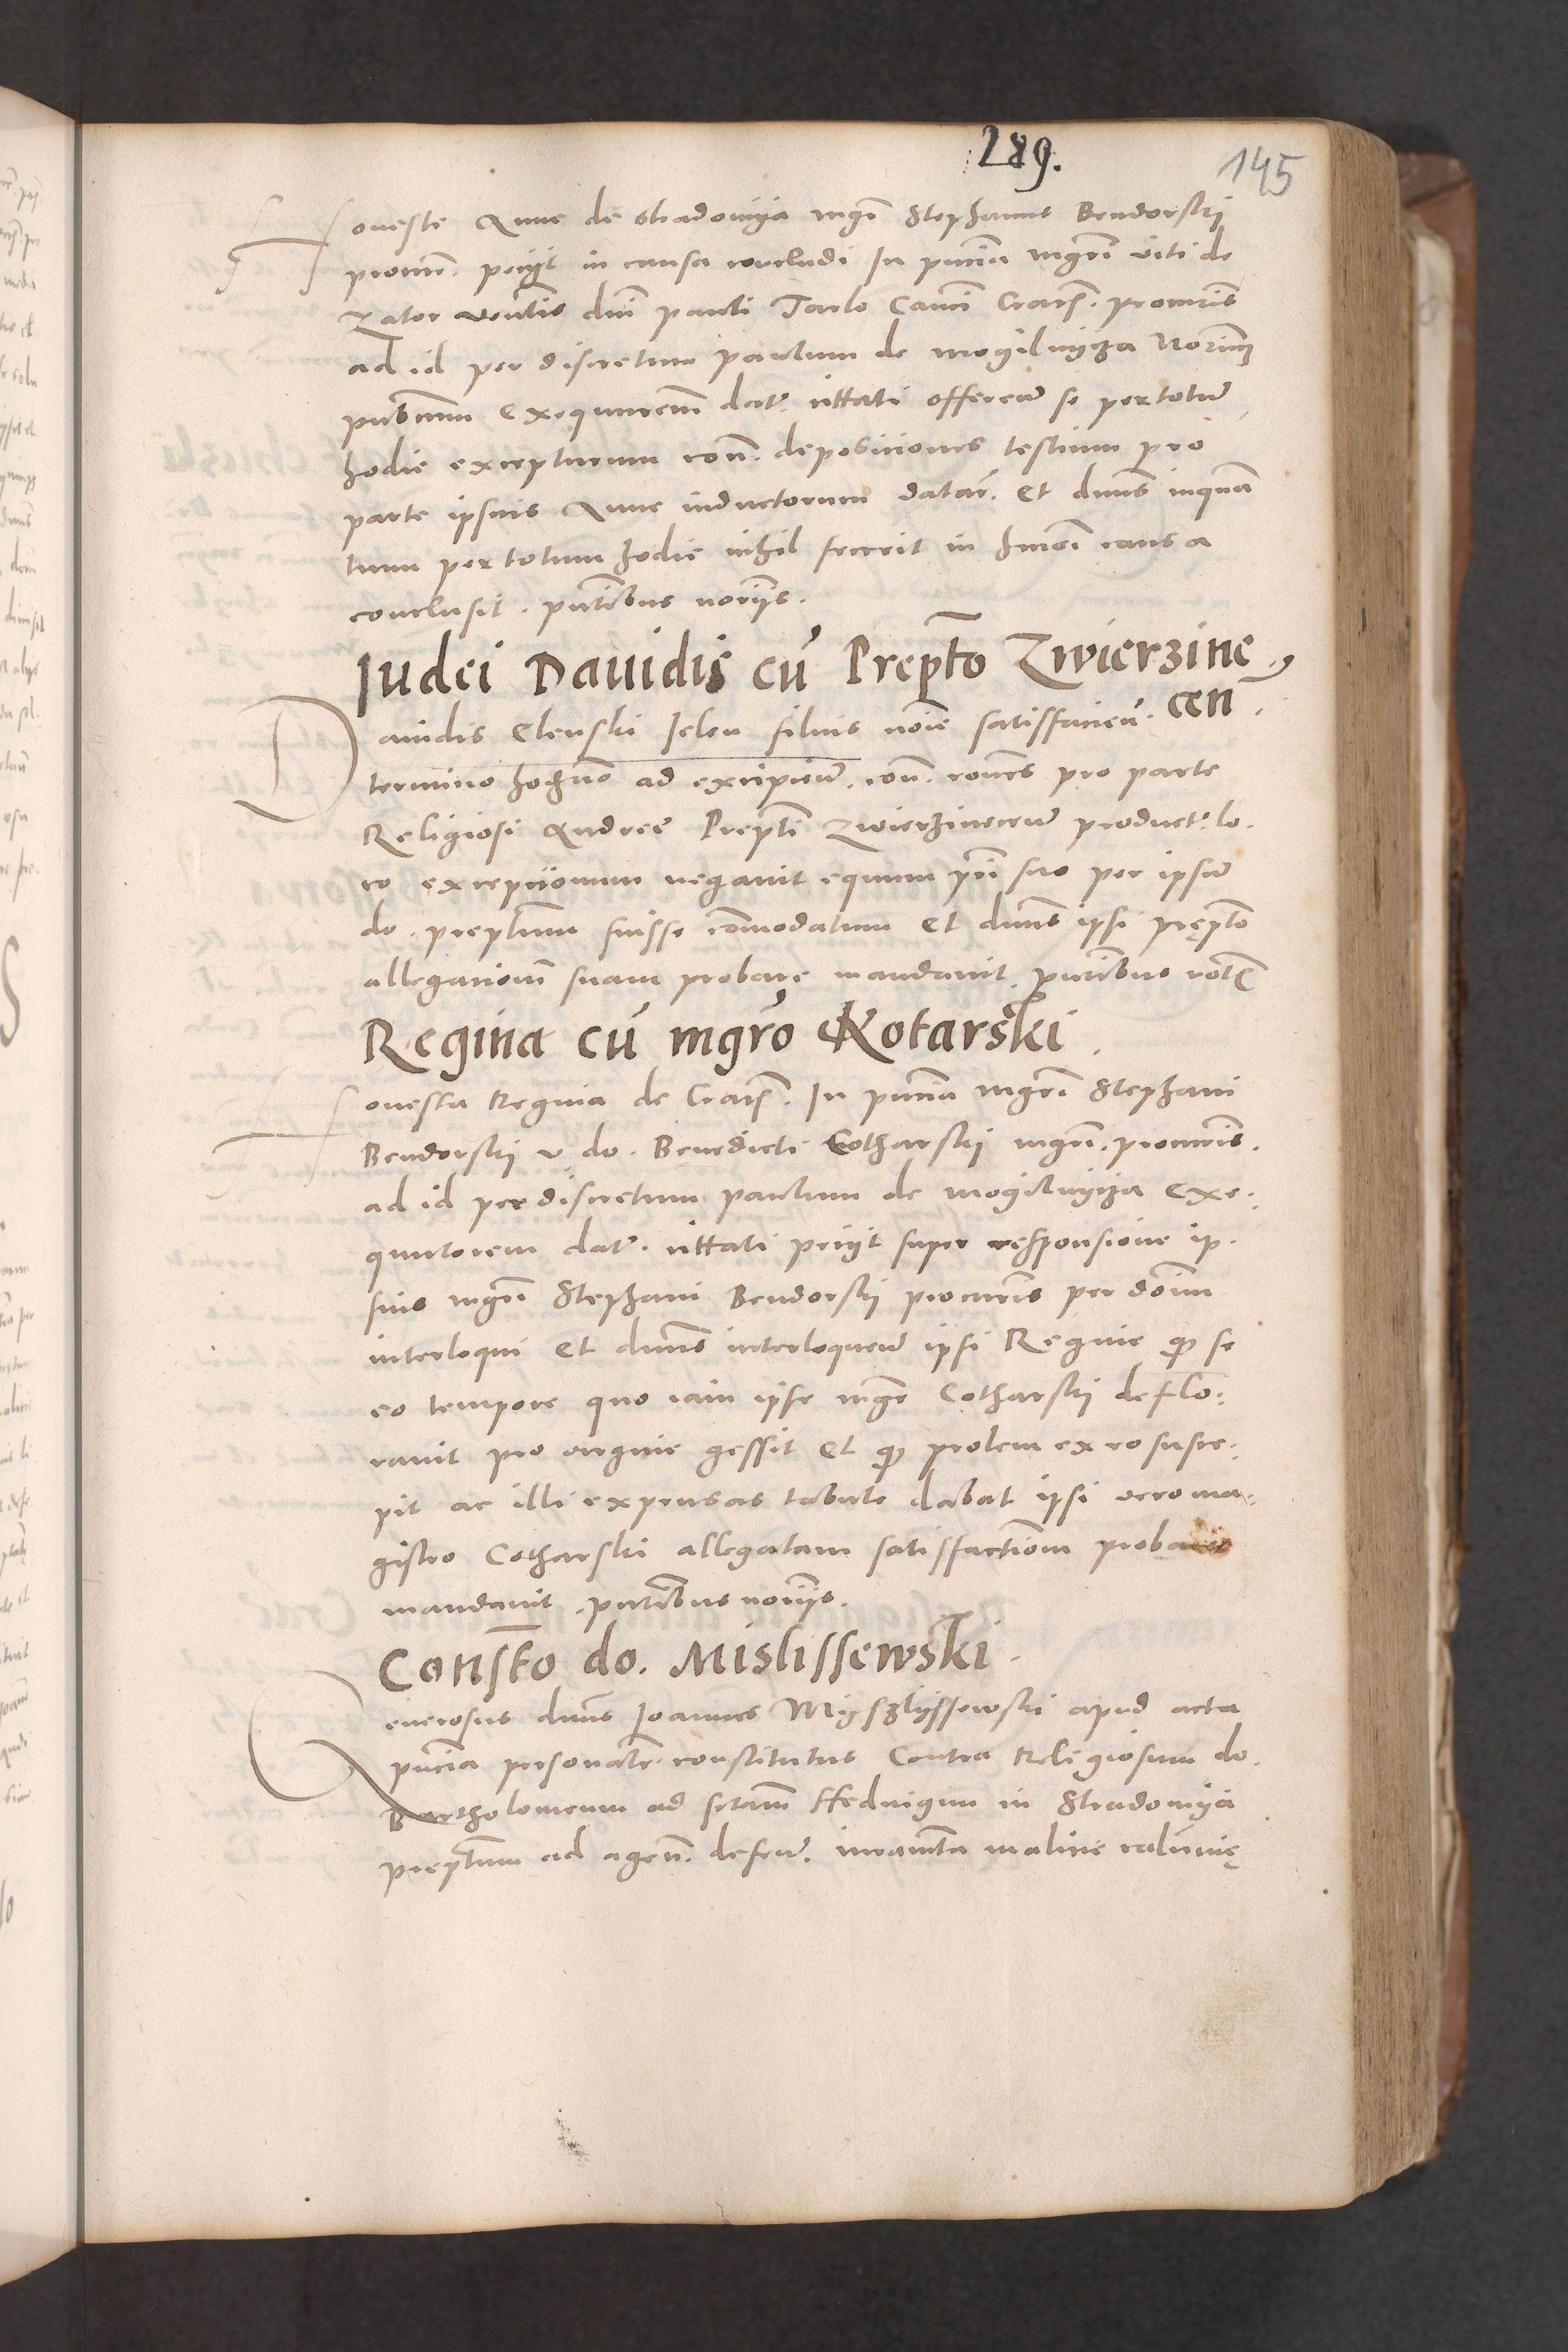 289.
145
Honeste Anne de Stradomya mgri Stephanus Bendorski
procur. petyt in causa concludi In pntia mgri viti de
Zator ventis dni pauli Tarlo Canci Cracs. procuris
ad id per discretum paulum de mogilnycza Norium
publicum exequutorem dat. cittati offeren se per totum
hodie excepturum con. depositiones testium pro
parte ipsius Anne inductorum datar. Et dnus inquan
tum per totum hodie nihil fecerit in hmoi causa
conclusit. pntibus noriis.
Iudei Dauidis cu Prepto Zwierzine
cen.
Dauidis Clenski Ielen filius noie satisfacien.
termino hodierno ad excipien. con. tones pro parte
Religiosi Andree Prepti Zwierzinecen product. lo.
co exceptionum negauit equum pri suo per ipsum
do. preptum fuisse commodatum Et dnus ipsi prepto
allegationem suam probare mandauit. pntibus not
Regina cu mgro Kotarski.
Honesta Regina de Cracs. In pntia mgri Stephani
Bendorski v do. Benedicti Cotharski mgri. procuris.
ad id per discretum paulum de mogilnycza Exe.
quutorem dat. cittati petyt super responsione ip.
sius mgri Stephani Bendorski procuris per donum
interloqui Et dnus interloquen ipsi Regine q se
eo tempore quo eam ipse mgr Cotharski deflo.
rauit pro virgine gessit Et q prolem ex eo susce.
pit ac illi expensas tabule dabat ipsi vero ma.
gistro Cotharski allegatam satisfactionem probare
mandauit. pntibus noriis.
Consto do. Mislissewski.
Generosus dnus Ioannes Myszlyssewski apud acta
pntia personalr. constitutus Contra Religiosum do.
Bartholomeum ad sctam Heduigim in Stradomya
preptum ad agen. defen. iuramta malicie calumnię